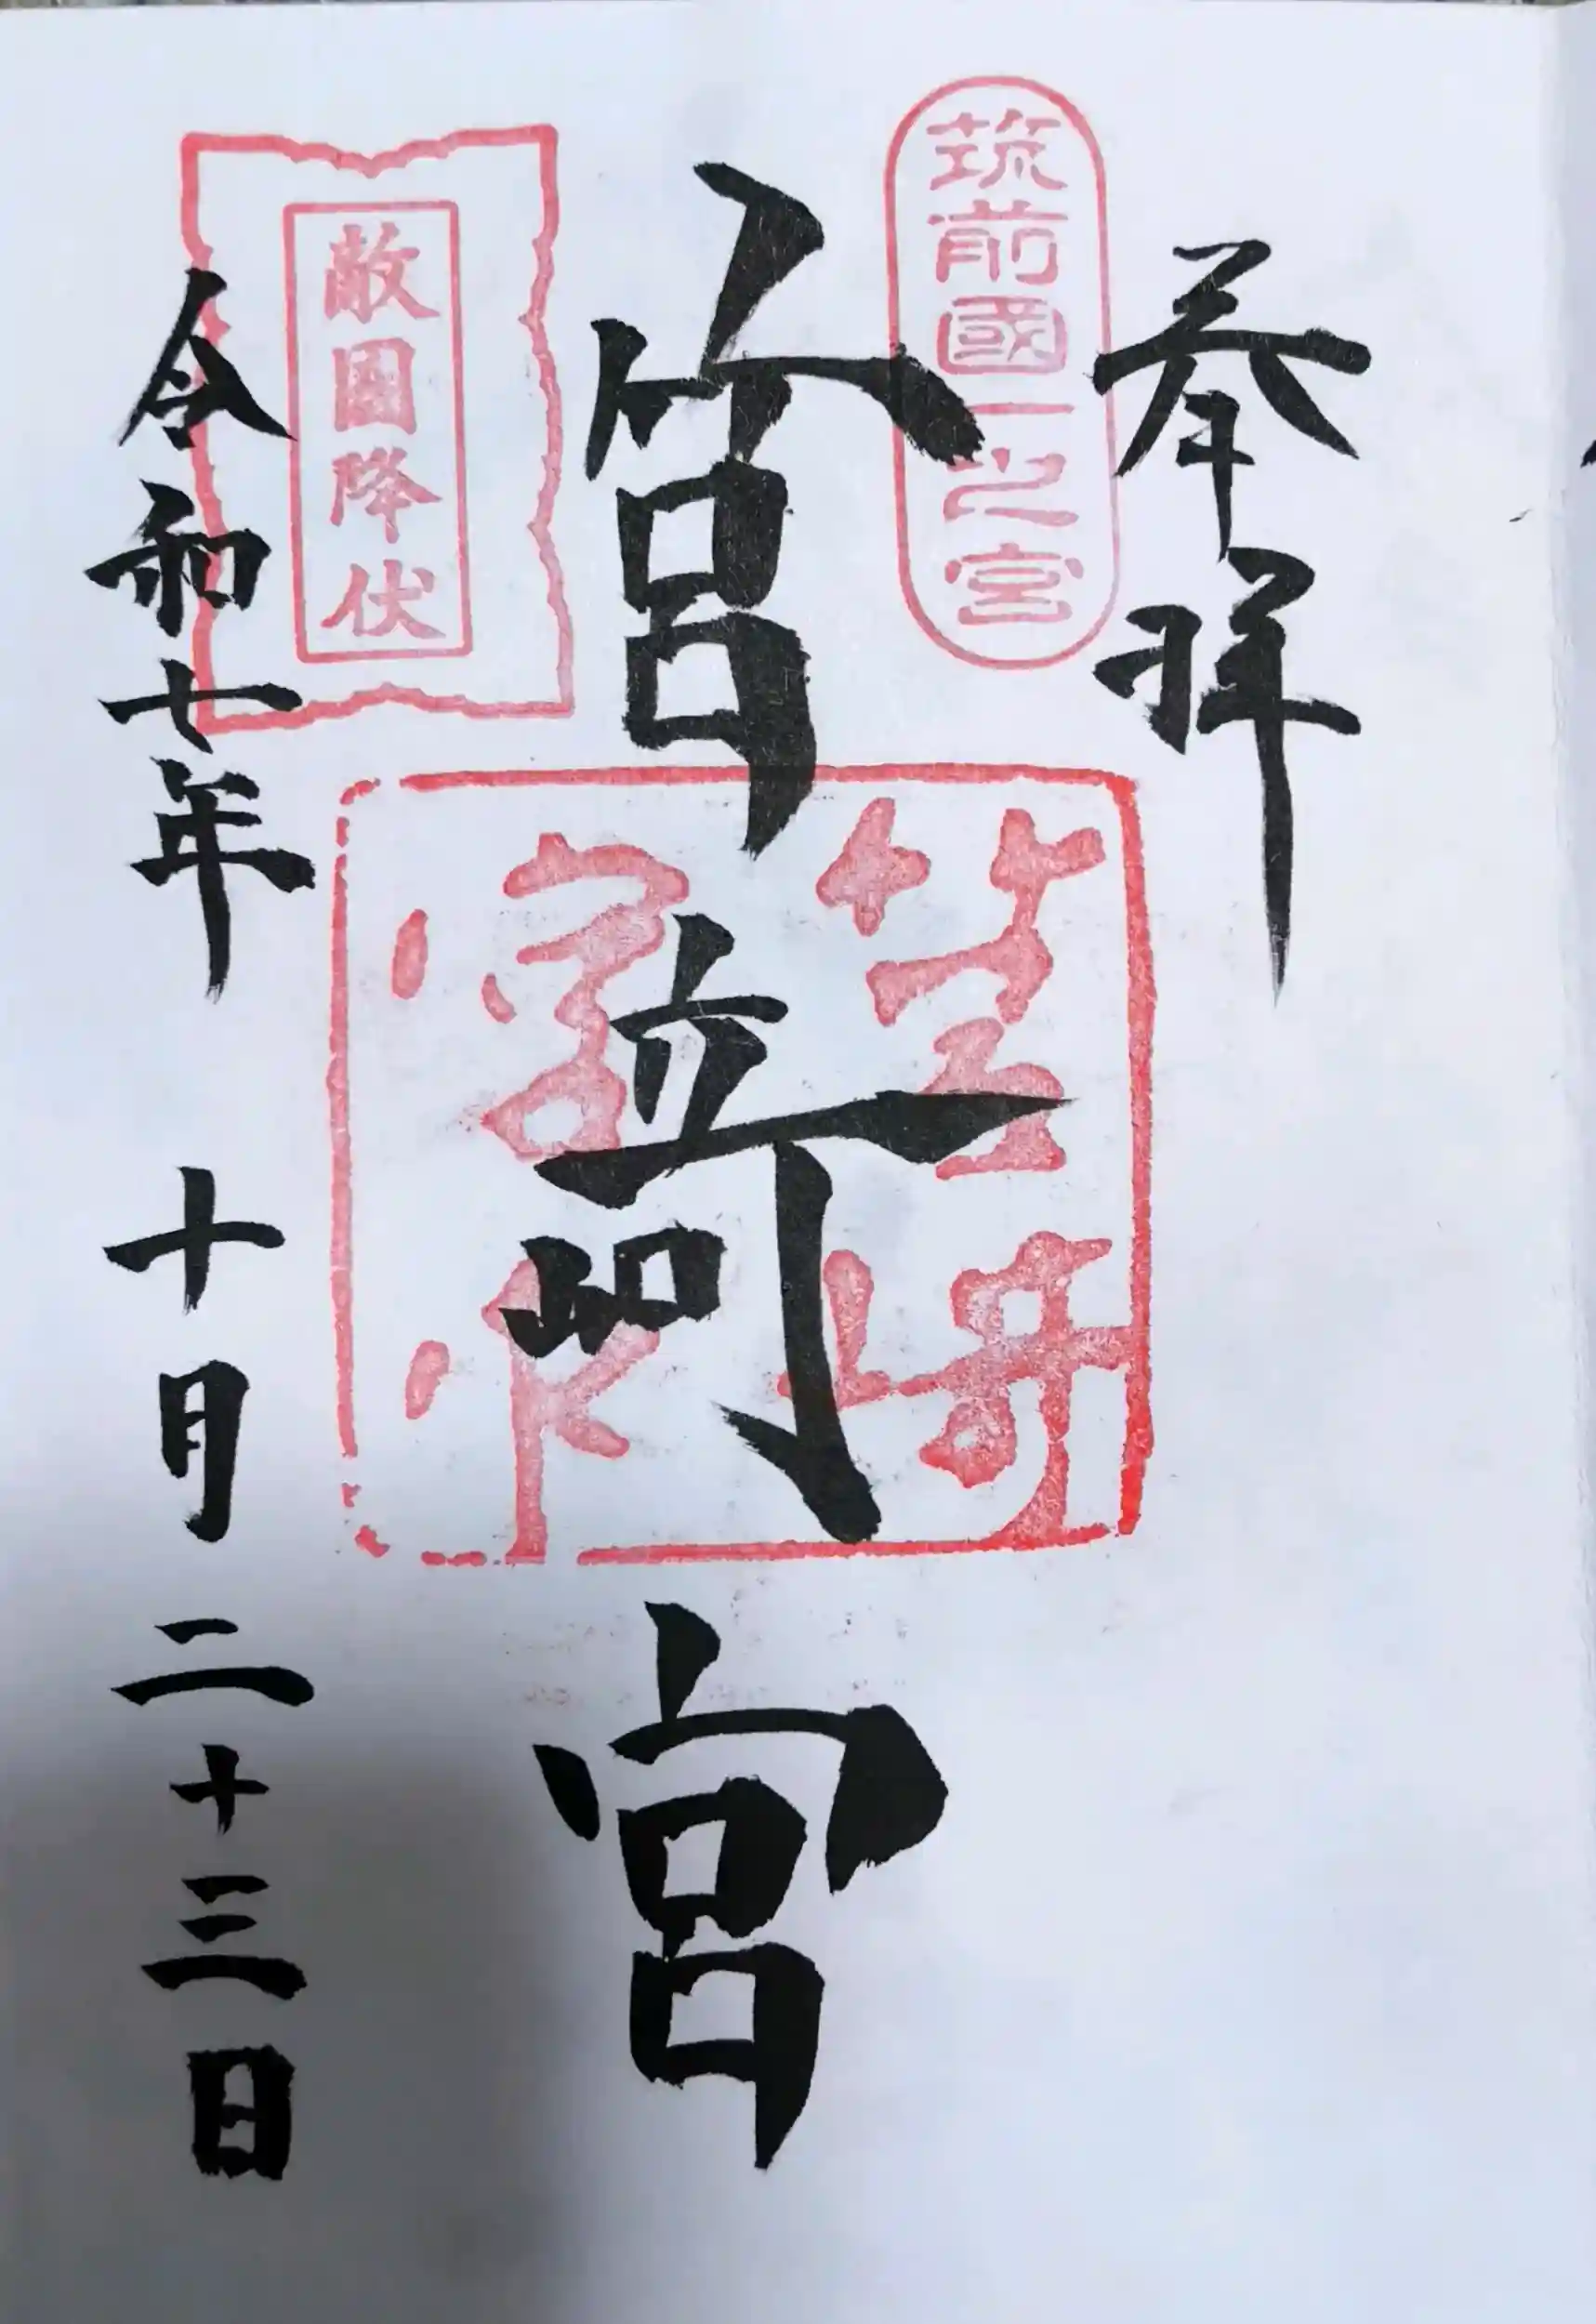 奉拝
筑前國一之宮
筥崎宮
筥崎
宮印
敵国降伏
令和七年 十月 二十三日